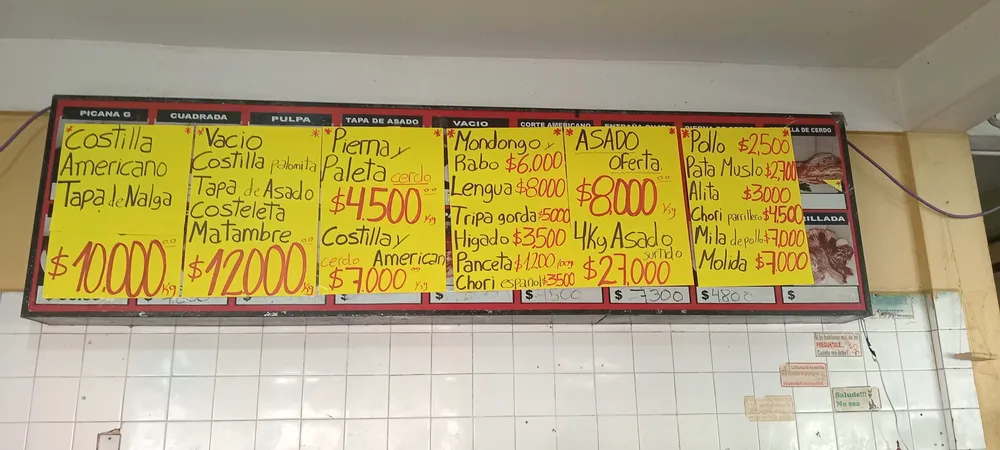 PICANA G
CUADRADA
PULPA
TAPA DE ASADO
VACIO
CORTE AMERICANO
LLA DE CERDO
*Costilla
Americano
Tapa de Nalga
$10.000.00 Kg
*Vacio*
Costilla palomita
Tapa de Asado
Costeleta
Matambre
$12000 Kg
*Pierna y*
Paleta cerdo
$4.500.00 Kg
Costilla y
cerdo American
$7.000.00 Kg
*Mondongo y*
Rabo $6.000
Lengua $8000
Tripa gorda $5000
Higado $3.500
Panceta $1.200 100g
Chori español $3500
*ASADO*
oferta
$8.000.00 Kg
4Kg Asado
surtido
$27.000
*Pollo $2,500
Pata Muslo $2700
Alita $3000
Chori parrillero $4,500
Mila de pollo $7.000
Molida $7.000
RILLADA
$ 7300
$ 4800
$
PREGUNTALE..
Salude!!!
No sea